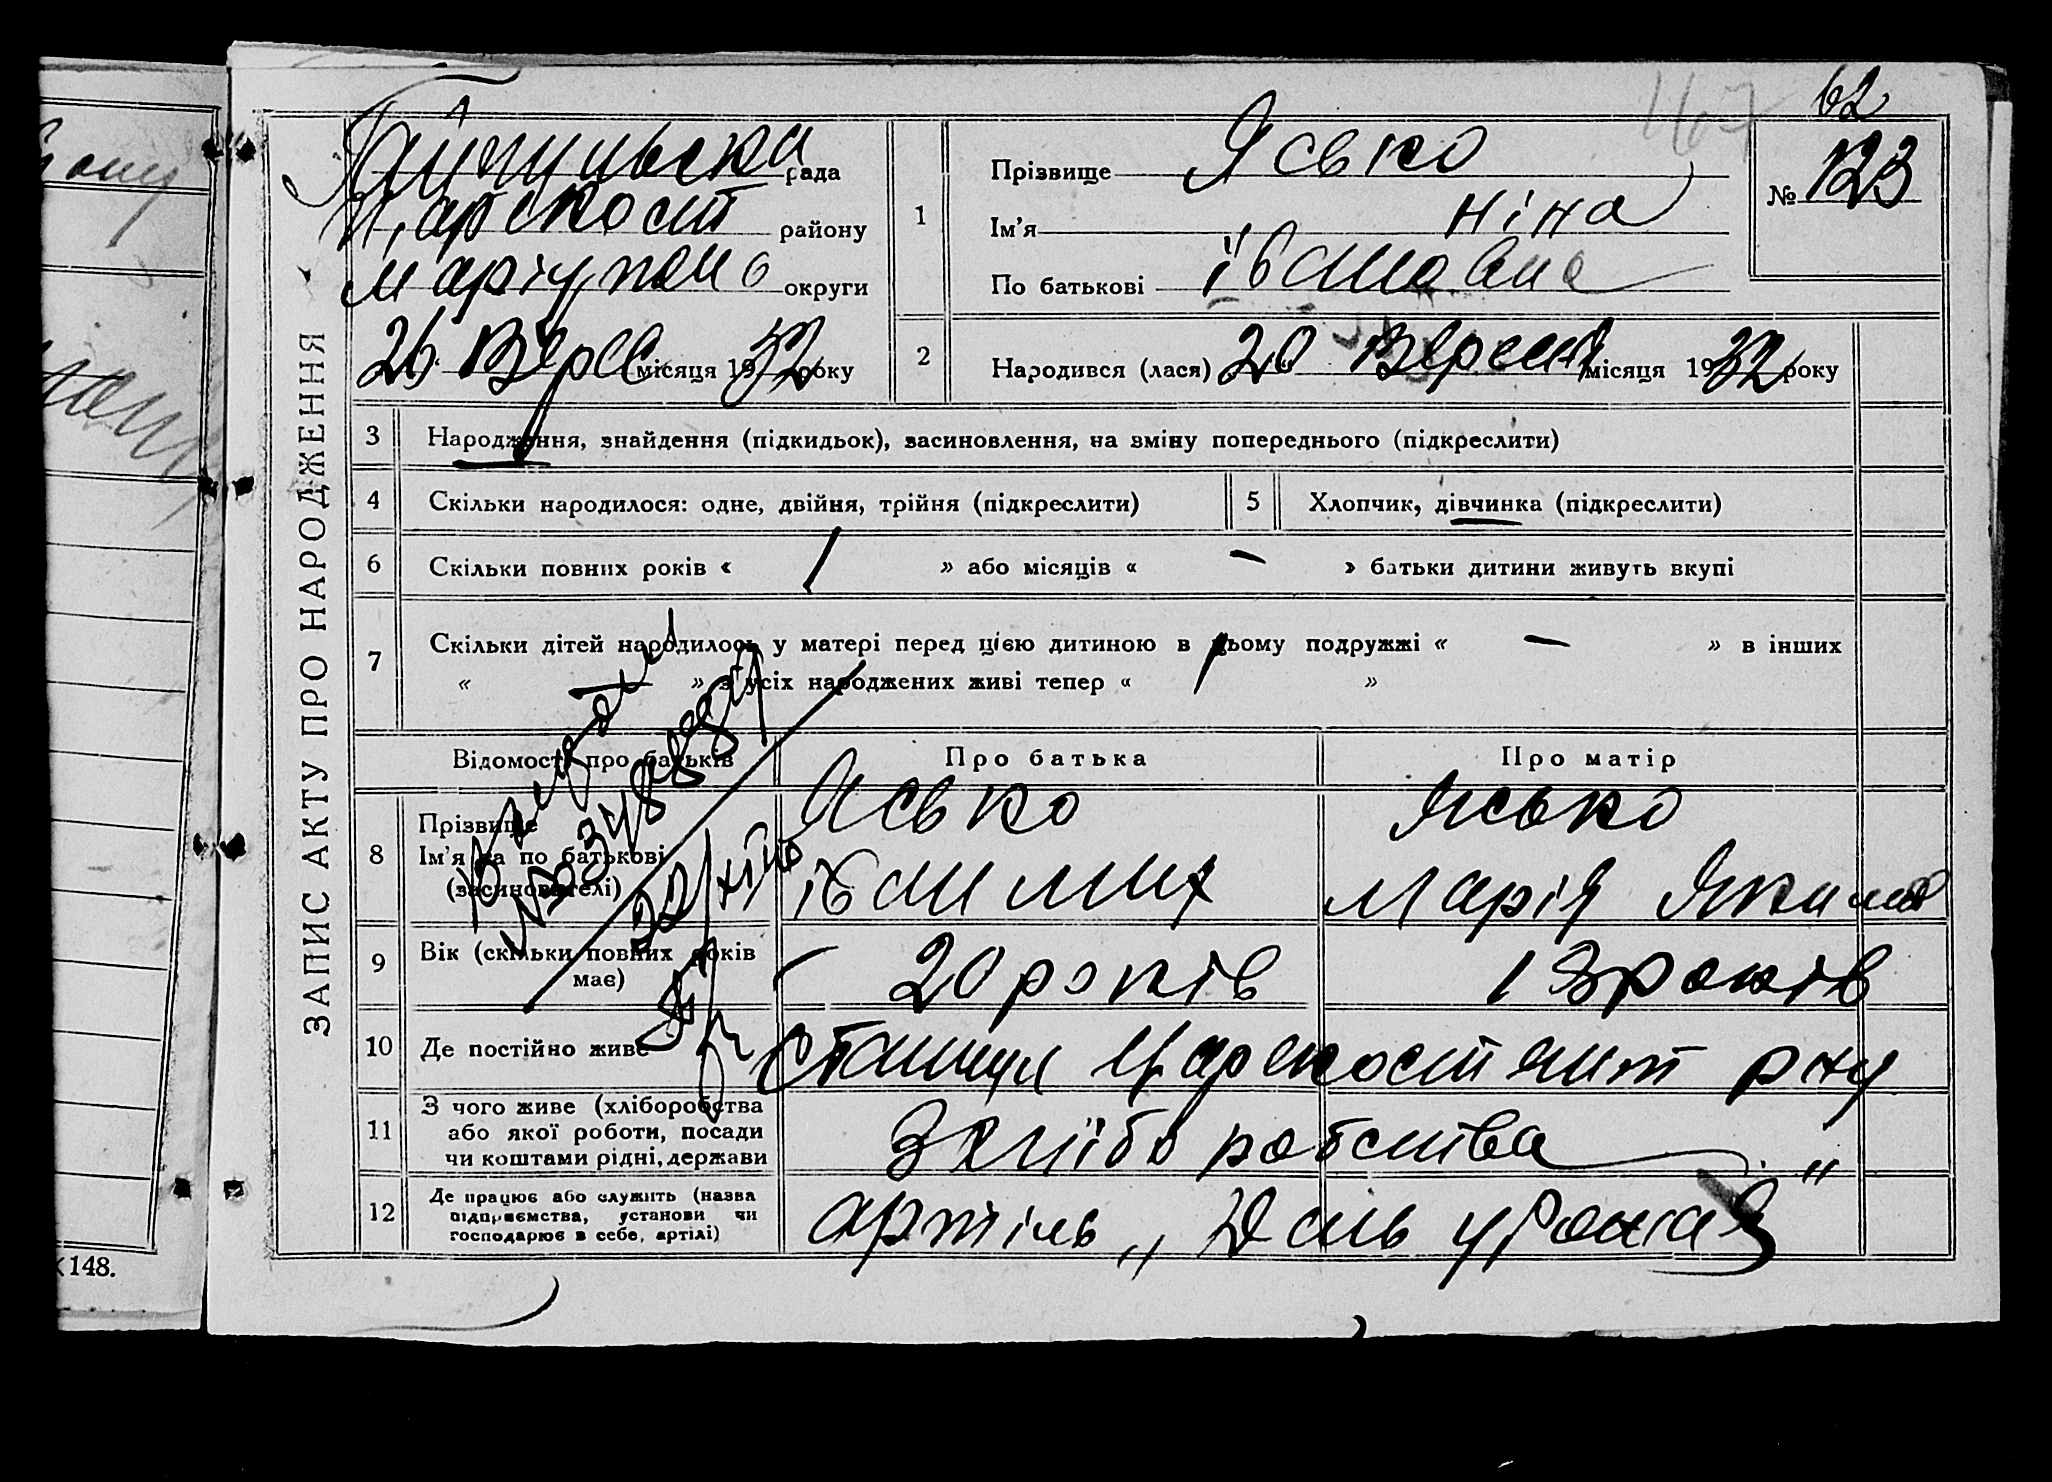 62
167
ЗАПИС АКТУ ПРО НАРОДЖЕННЯ
рада
Царекост району
маріупол округи
26 Верес місяця 1932 року
1
Прізвище Ясько
Ім'я ніна
По батькові івановна
№ 123
2
Народився (лася) „20“ Вересня місяця 1932 року
3 Народження, знайдення (підкидьок), засиновлення, на зміну попереднього (підкреслити)
4 Скільки народилося: одне, двійня, трійня (підкреслити)
5 Хлопчик, дівчинка (підкреслити)
6 Скільки повних років « 1 » або місяців « — » батьки дитини живуть вкупі
7 Скільки дітей народилось у матері перед цією дитиною в цьому подружжі « — » в інших
« — » з усіх народжених живі тепер « 1 »
Відомості про батьків Про батька Про матір
8 Прізвище Ясько Ясько
Ім'я та по батькові
(засиновителі) марія
9 Вік (скільки повних років має) 20 років 18 років
10 Де постійно живе р ну
11 З чого живе (хліборобства
або якої роботи, посади
чи коштами рідні, держави
З хліборобства
12 Де працює або служить (назва
підприємства, установи чи
господарює в себе, артілі)
артіль „День урожая"
148.